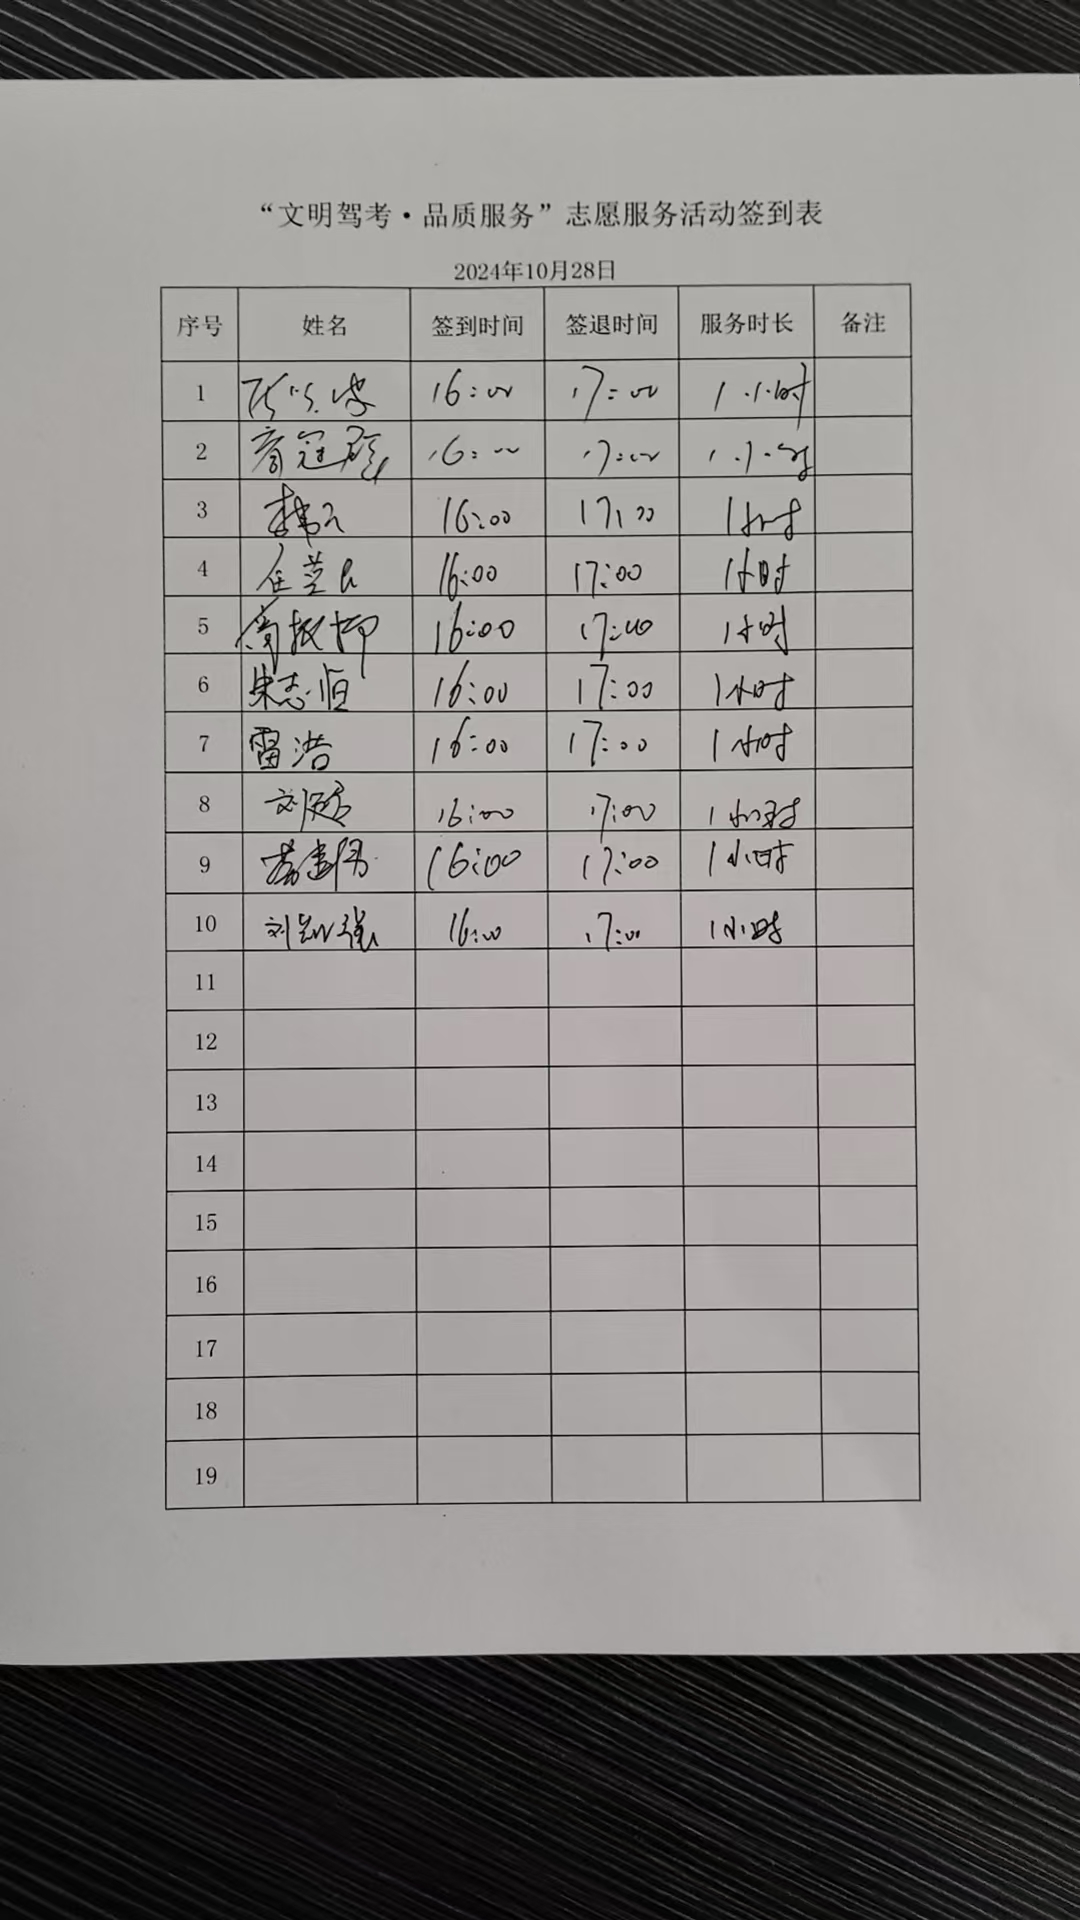 “文明驾考·品质服务”志愿服务活动签到表
2024年10月28日
序号 姓名 签到时间 签退时间 服务时长 备注
1 16:00 17:00 1小时
2 16:00 17:00 1小时
3 16:00 17:00 1小时
4 16:00 17:00 1小时
5 16:00 17:00 1小时
6 朱志恒 16:00 17:00 1小时
7 雷浩 16:00 17:00 1小时
8 16:00 17:00 1小时
9 16:00 17:00 1小时
10 16:00 17:00 1小时
11
12
13
14
15
16
17
18
19